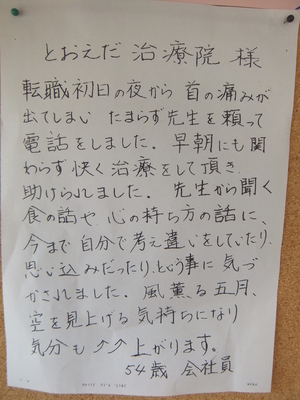 とおえだ 治療院 様
転職初日の夜から 首の痛みが
出てしまい たまらず先生を頼って
電話をしました。早朝にも関
わらず快く治療をして頂き、
助けられました。先生から聞く
食の話や 心の持ち方の話に、
今まで自分で考え違いをしていたり、
思い込みだったり、という事に気づ
かされました。風薫る五月、
空を見上げる気持ちになり
気分も↗↗上がります。
54歳 会社員